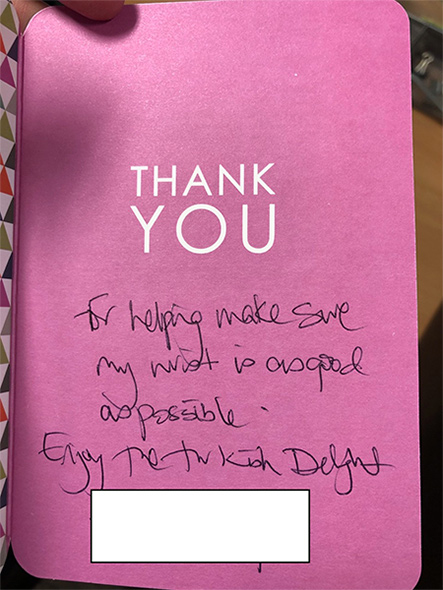 THANK
YOU
for helping make sure
my wrist is as good
as possible.
Enjoy the Turkish Delight